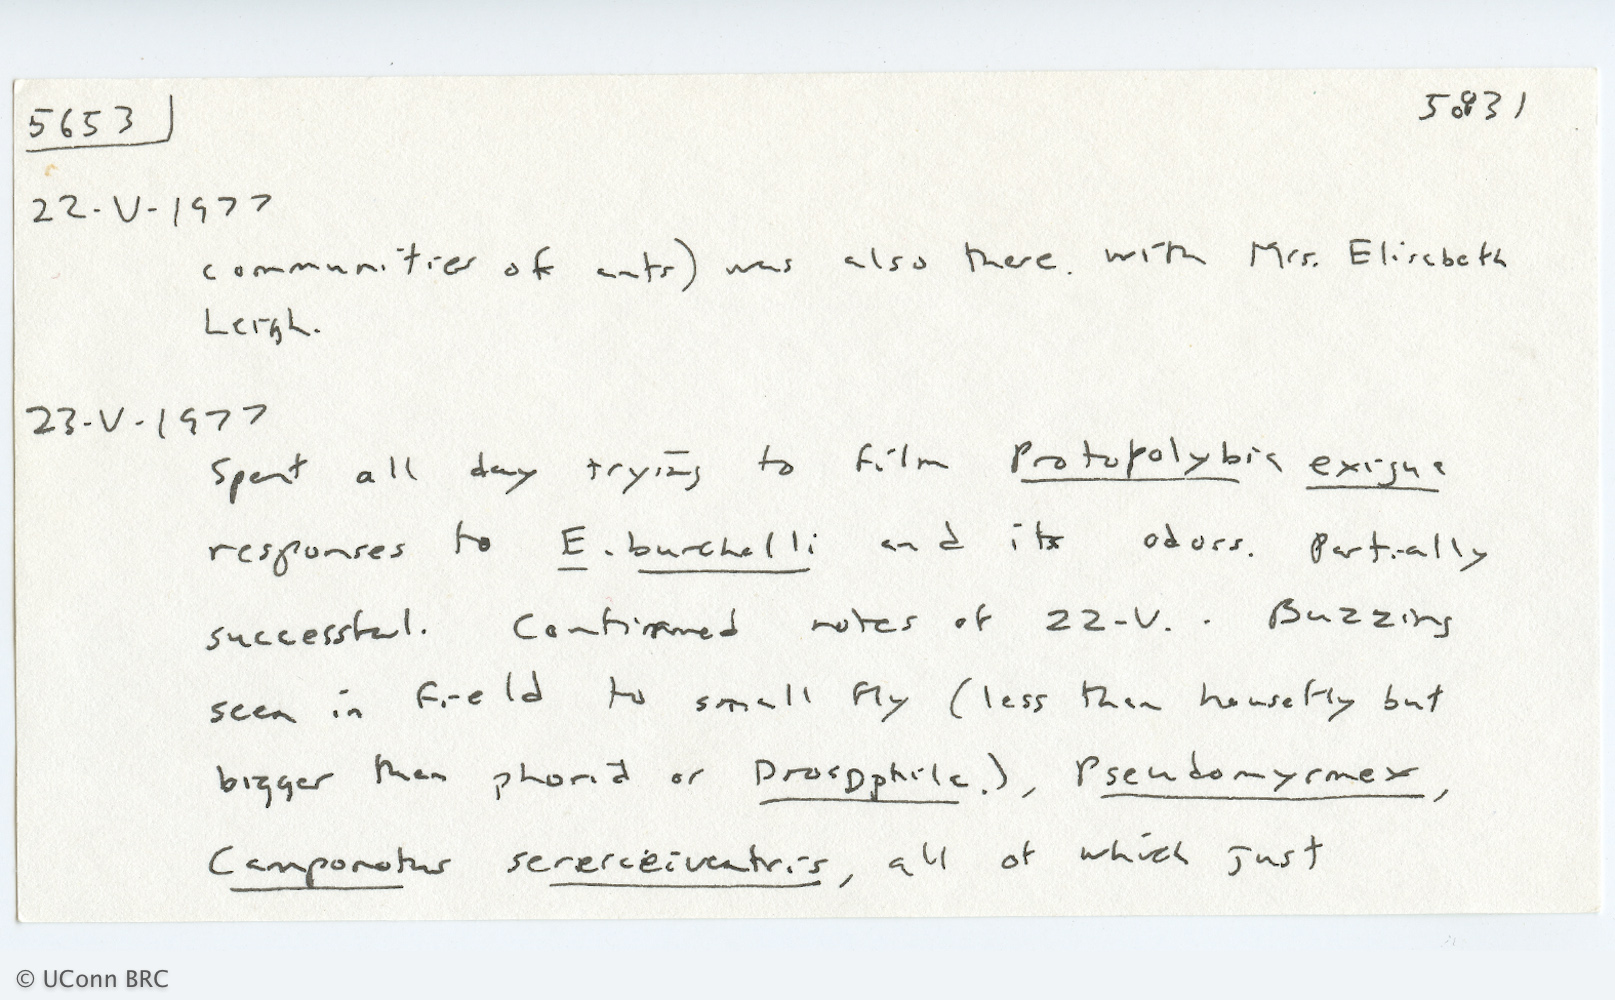 5653 5831
22-V-1977
communities of ants) was also there. with Mrs. Elizabeth
Leigh.
23-V-1977
Spent all day trying to film Protopolybia exigua
responses to E. burchelli and its odors. Partially
successful. Confirmed notes of 22-V. Buzzing
seen in field to small fly (less than housefly but
bigger than phorid or Drosophila.), Pseudomyrmex,
Camponotus sericeiventris, all of which just
© UConn BRC